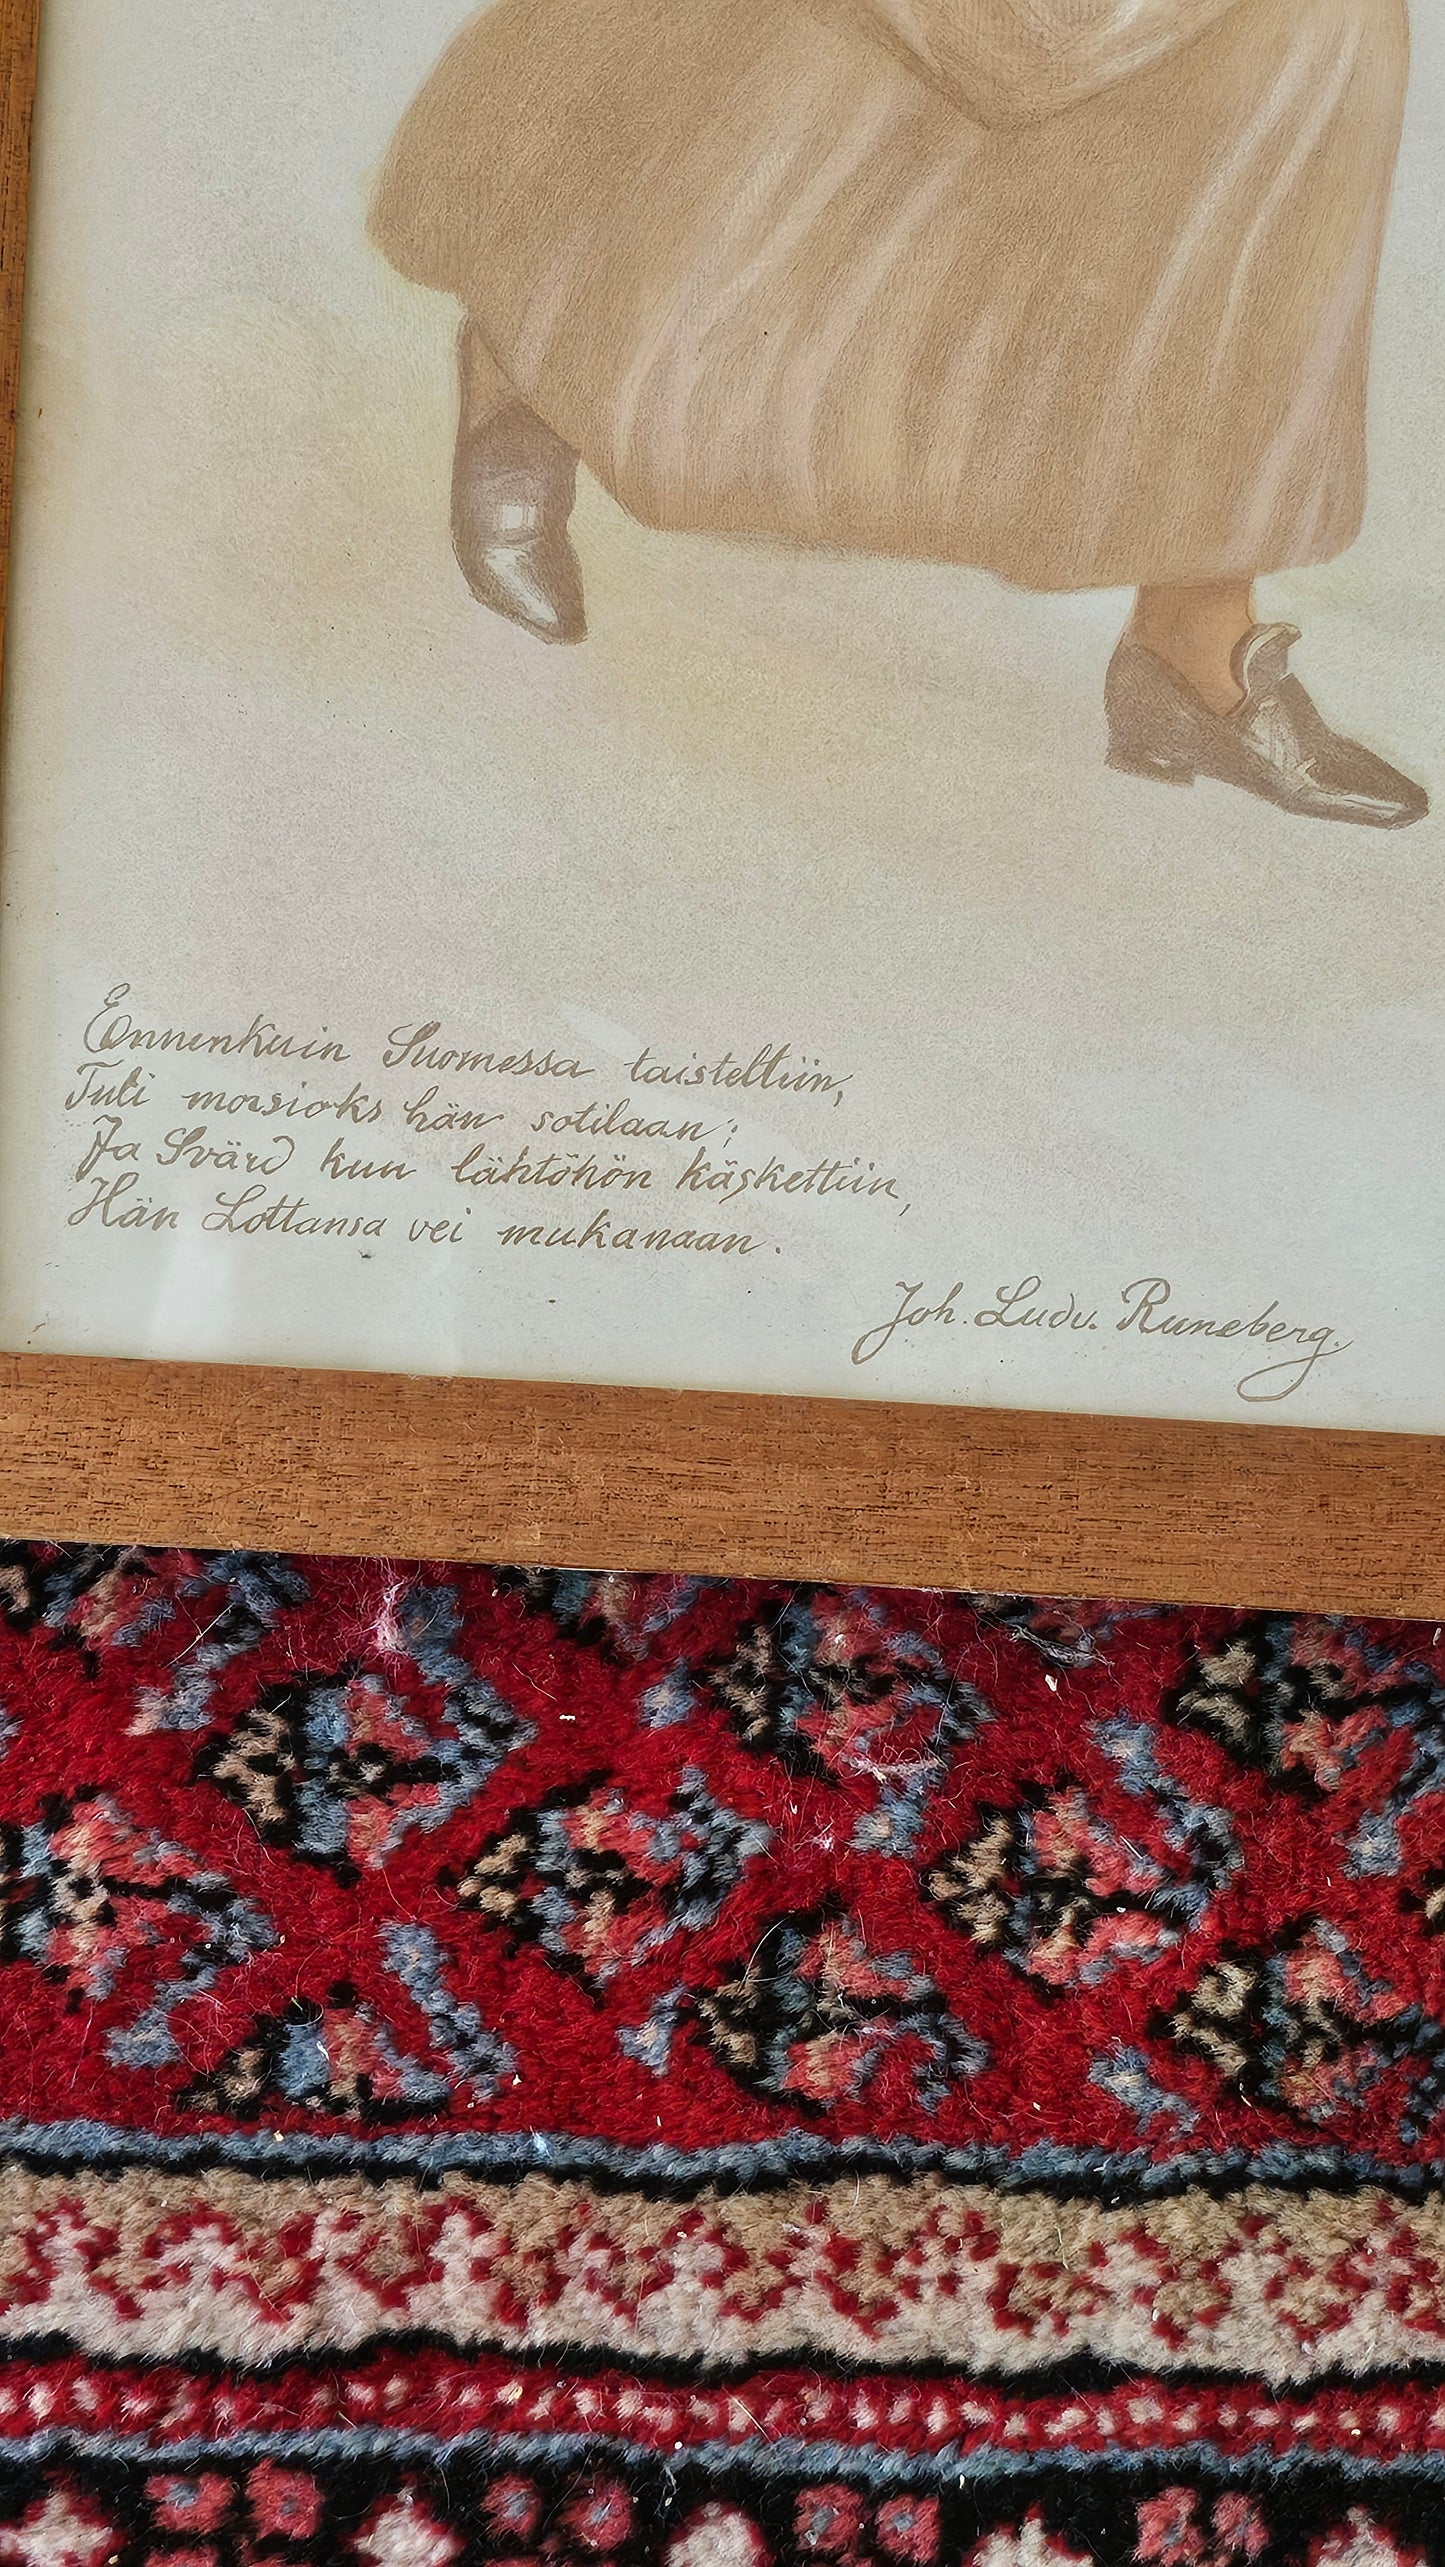 Ennenkuin Suomessa taisteltiin,
Tuli morsioks hän sotilaan;
Ja Svärd kun lähtöhön käskettiin,
Hän Lottansa vei mukanaan.
Joh. Ludv. Runeberg.